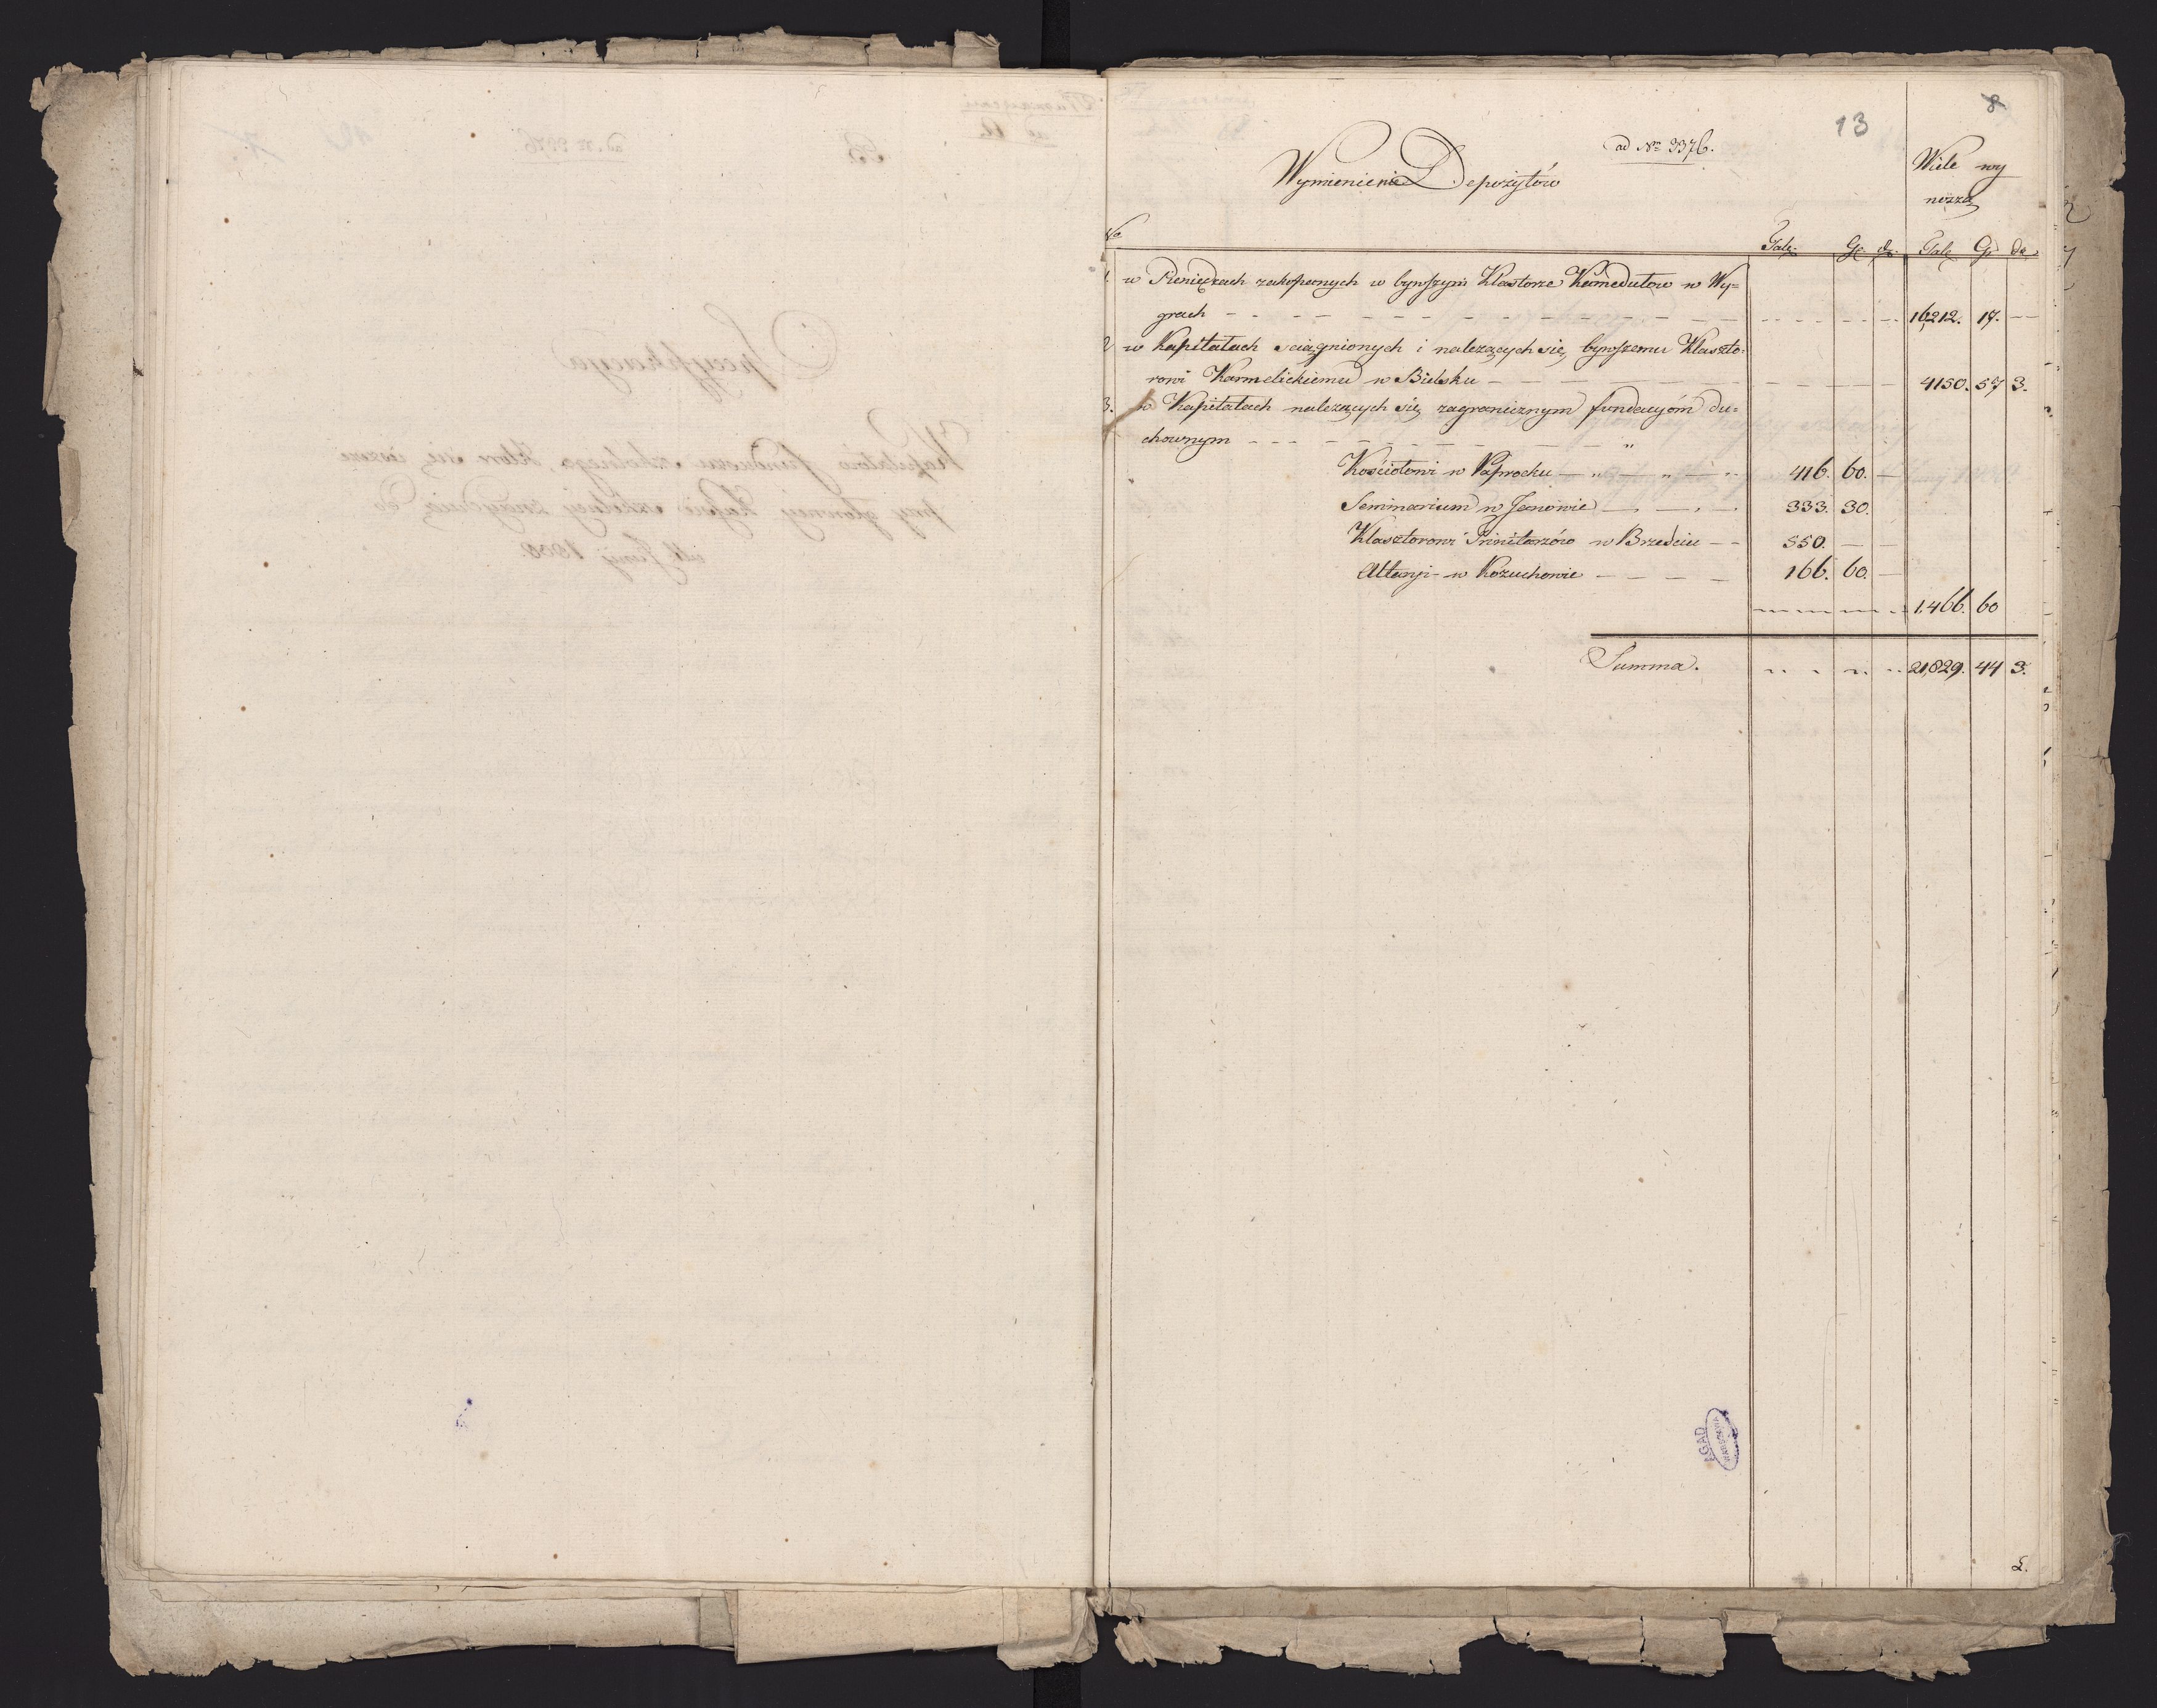 13
8
ad Nro 3376.
Wymienienie Depozytów
Wiele wy
noszą
No
Talr. Gr. d. Talr. Gr. de.
1. w Pieniędzach zakopanych w bywszym Klastorze Kamedułow w Wy=
grach - - - 16,212. 17. —
2 w Kapitałach sciągnionych i nalezących się bywszemu Klaszto-
rowi Karmelickiemu w Bielsku - - - 4150. 57 3.
3. w Kapitałach nalezących się zagranicznym fundacyóm du=
chownym - - -
Kościołowi w Paprocku - - - 416. 60. —
Seminarium w Janowie - - - 333. 30.
Klasztorowi Trinitarzów w Brześciu - - 550. — —
Altaryi w Kozuchowie - - - 166. 60. —
1,466. 60
Summa. 21,829. 44 3.
AGAD
WARSZAWA